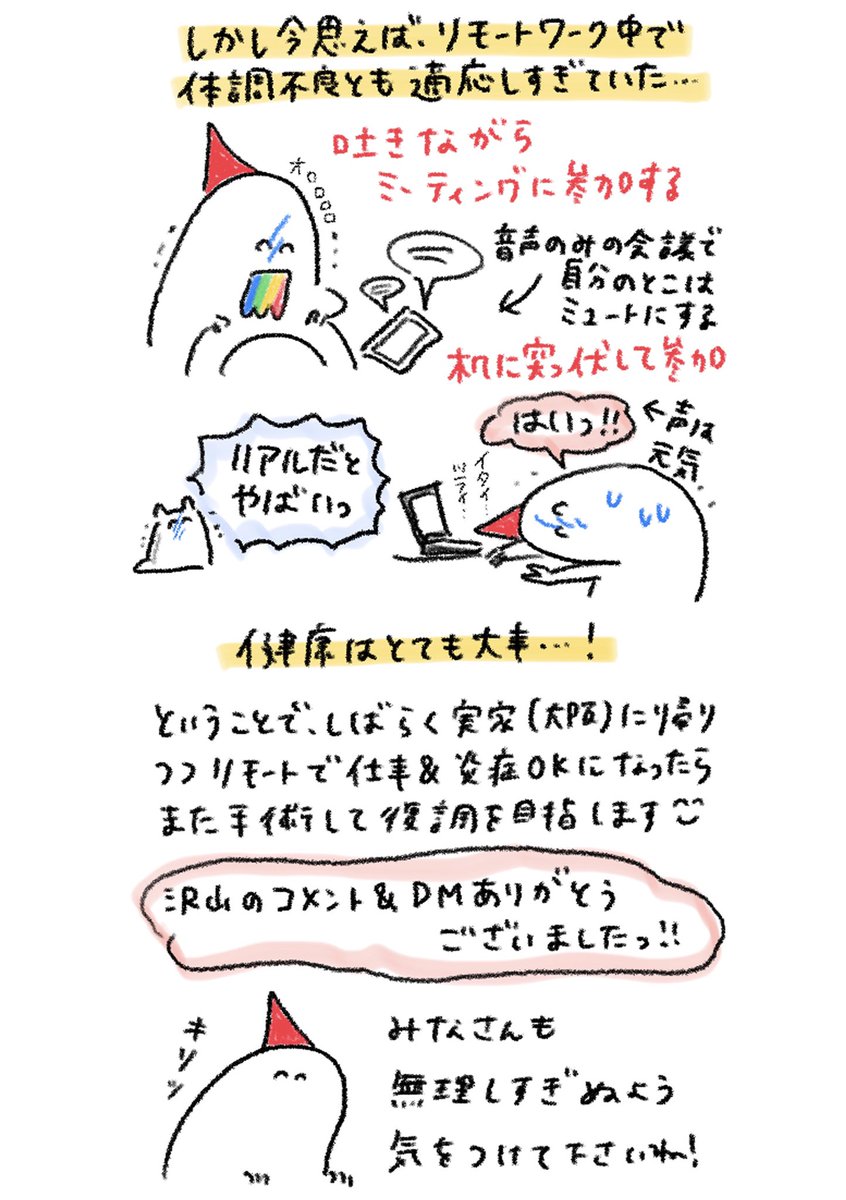 しかし今思えば、リモートワーク中で
体調不良とも適応しすぎていた…
吐きながら
ミーティングに参加する
オロロロロ
音声のみの会議で
自分のとこは
ミュートにする
机に突っ伏して参加
はいっ!!
←声は
元気
リアルだと
やばいっ
イタイ…
イタイ…
健康はとても大事…!
ということで、しばらく実家(大阪)に帰り
つつリモートで仕事&炎症OKになったら
また手術して復調を目指します
沢山のコメント&DMありがとう
ございましたっ!!
キリッ
みなさんも
無理しすぎぬよう
気をつけて下さいね!